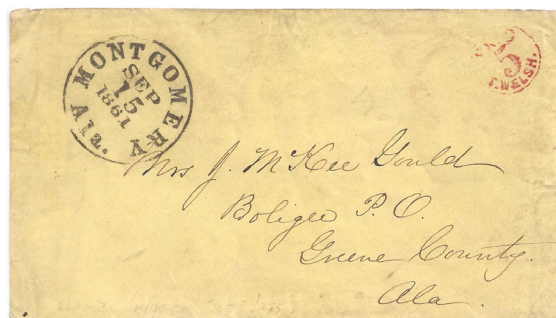 MONTGOMERY
Ala.
SEP
15
1861
PAID
5
T. WELSH.
Mrs J. McKee Gould
Boligee P. O.
Greene County.
Ala.